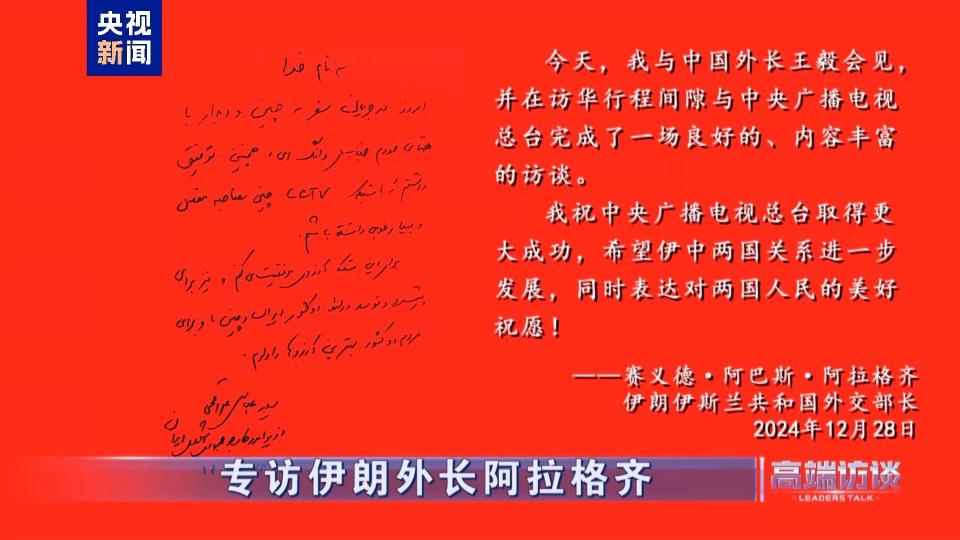 央视
新闻
به نام خدا
امروز در جریان سفر به چین و دیدار با
همتای خودم جناب وانگ ای، همچنین توفیق
داشتم که با شبکه CCTV چین مصاحبه مفصل
و بسیار خوب داشته باشم.
برای این شبکه آرزوی موفقیت می کنم و نیز برای
پیشبرد و توسعه روابط دو کشور ایران و چین و برای
مردم دو کشور بهترین آرزوها را دارم.
سید عباس عراقچی
وزیر امور خارجه جمهوری اسلامی ایران
今天，我与中国外长王毅会见，
并在访华行程间隙与中央广播电视
总台完成了一场良好的、内容丰富
的访谈。
我祝中央广播电视总台取得更
大成功，希望伊中两国关系进一步
发展，同时表达对两国人民的美好
祝愿！
——赛义德·阿巴斯·阿拉格齐
伊朗伊斯兰共和国外交部长
2024年12月28日
专访伊朗外长阿拉格齐
高端访谈
LEADERS TALK